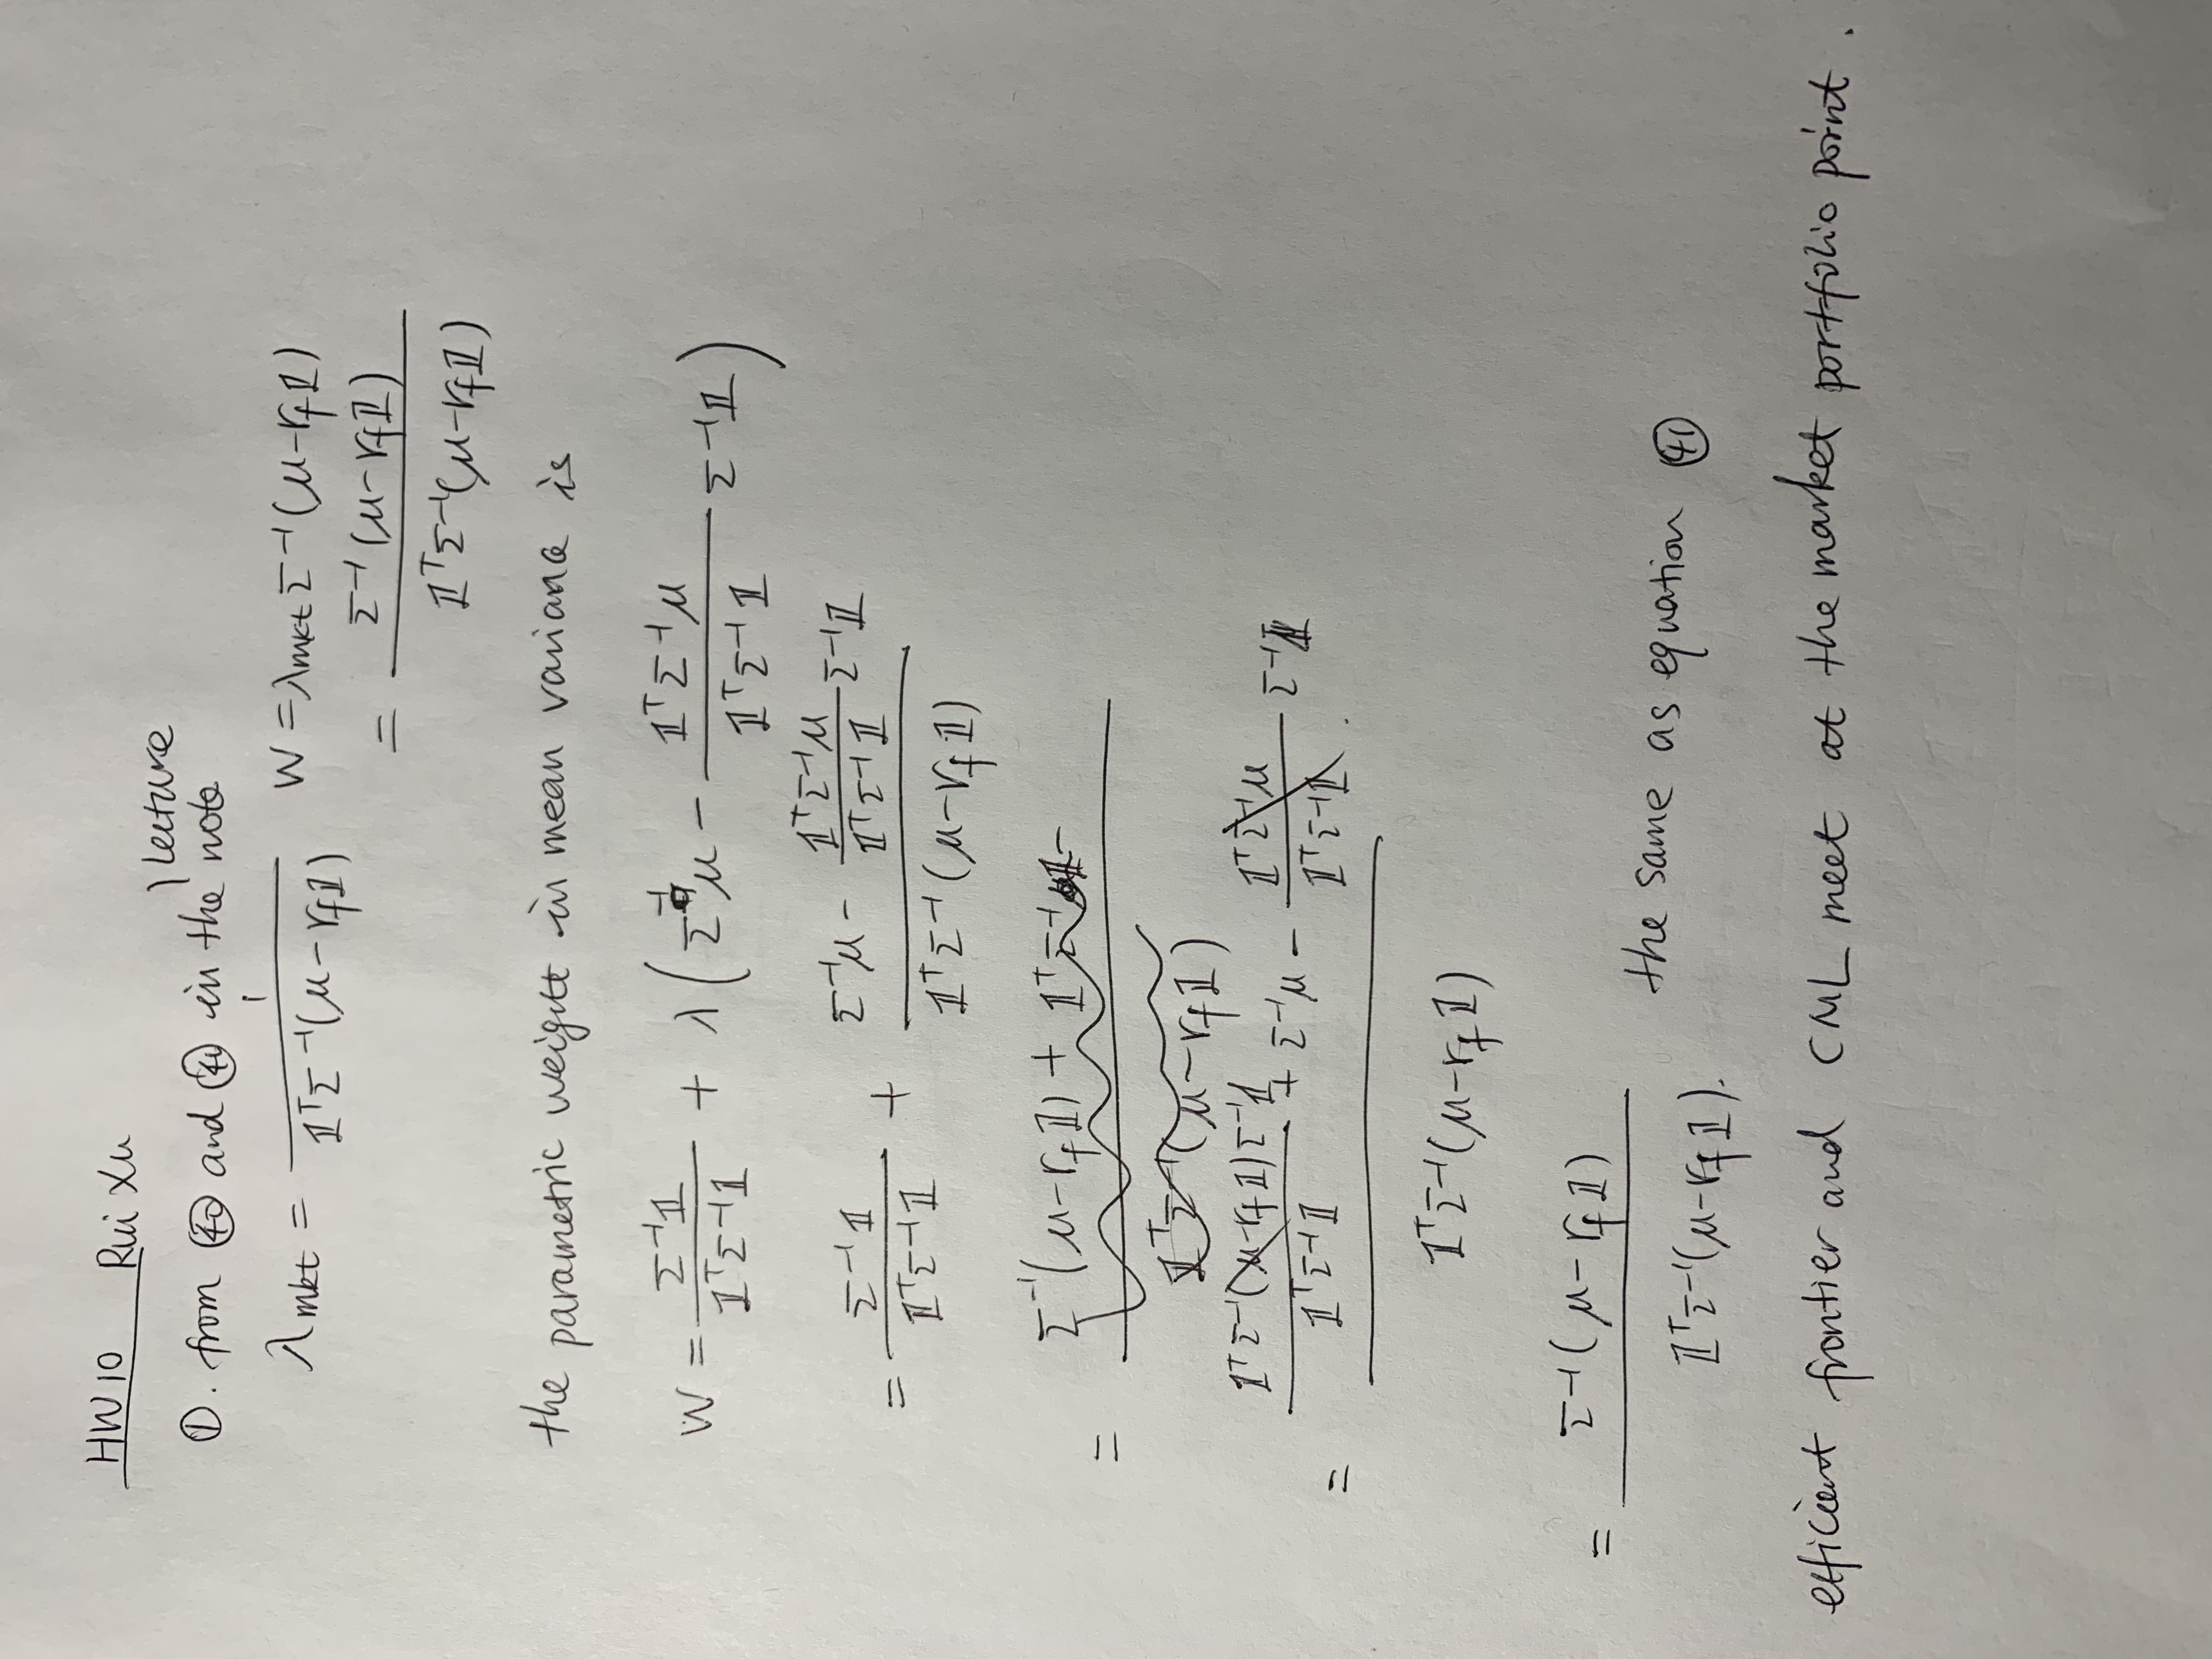 HW10 Rui Xu
lecture
①. from ㊵ and ㊶ in the note
λmkt = 1 / 𝟙ᵀΣ⁻¹(μ-rf𝟙) W = λmkt Σ⁻¹(μ-rf𝟙)
= Σ⁻¹(μ-rf𝟙) / 𝟙ᵀΣ⁻¹(μ-rf𝟙)
the parametric weight in mean variance is
W = Σ⁻¹𝟙 / 𝟙ᵀΣ⁻¹𝟙 + λ(Σ⁻¹μ - 𝟙ᵀΣ⁻¹μ / 𝟙ᵀΣ⁻¹𝟙 Σ⁻¹𝟙)
= Σ⁻¹𝟙 / 𝟙ᵀΣ⁻¹𝟙 + (Σ⁻¹μ - 𝟙ᵀΣ⁻¹μ / 𝟙ᵀΣ⁻¹𝟙 Σ⁻¹𝟙) / 𝟙ᵀΣ⁻¹(μ-rf𝟙)
= Σ⁻¹(μ-rf𝟙) + 𝟙ᵀΣ⁻¹ - / 𝟙ᵀΣ⁻¹(μ-rf𝟙)
= (𝟙ᵀΣ⁻¹(μ-rf𝟙)Σ⁻¹𝟙 / 𝟙ᵀΣ⁻¹𝟙 + Σ⁻¹μ - 𝟙ᵀΣ⁻¹μ / 𝟙ᵀΣ⁻¹𝟙 Σ⁻¹𝟙) / 𝟙ᵀΣ⁻¹(μ-rf𝟙)
= Σ⁻¹(μ-rf𝟙) / 𝟙ᵀΣ⁻¹(μ-rf𝟙). the same as equation ㊶
efficient frontier and CML meet at the market portfolio point.